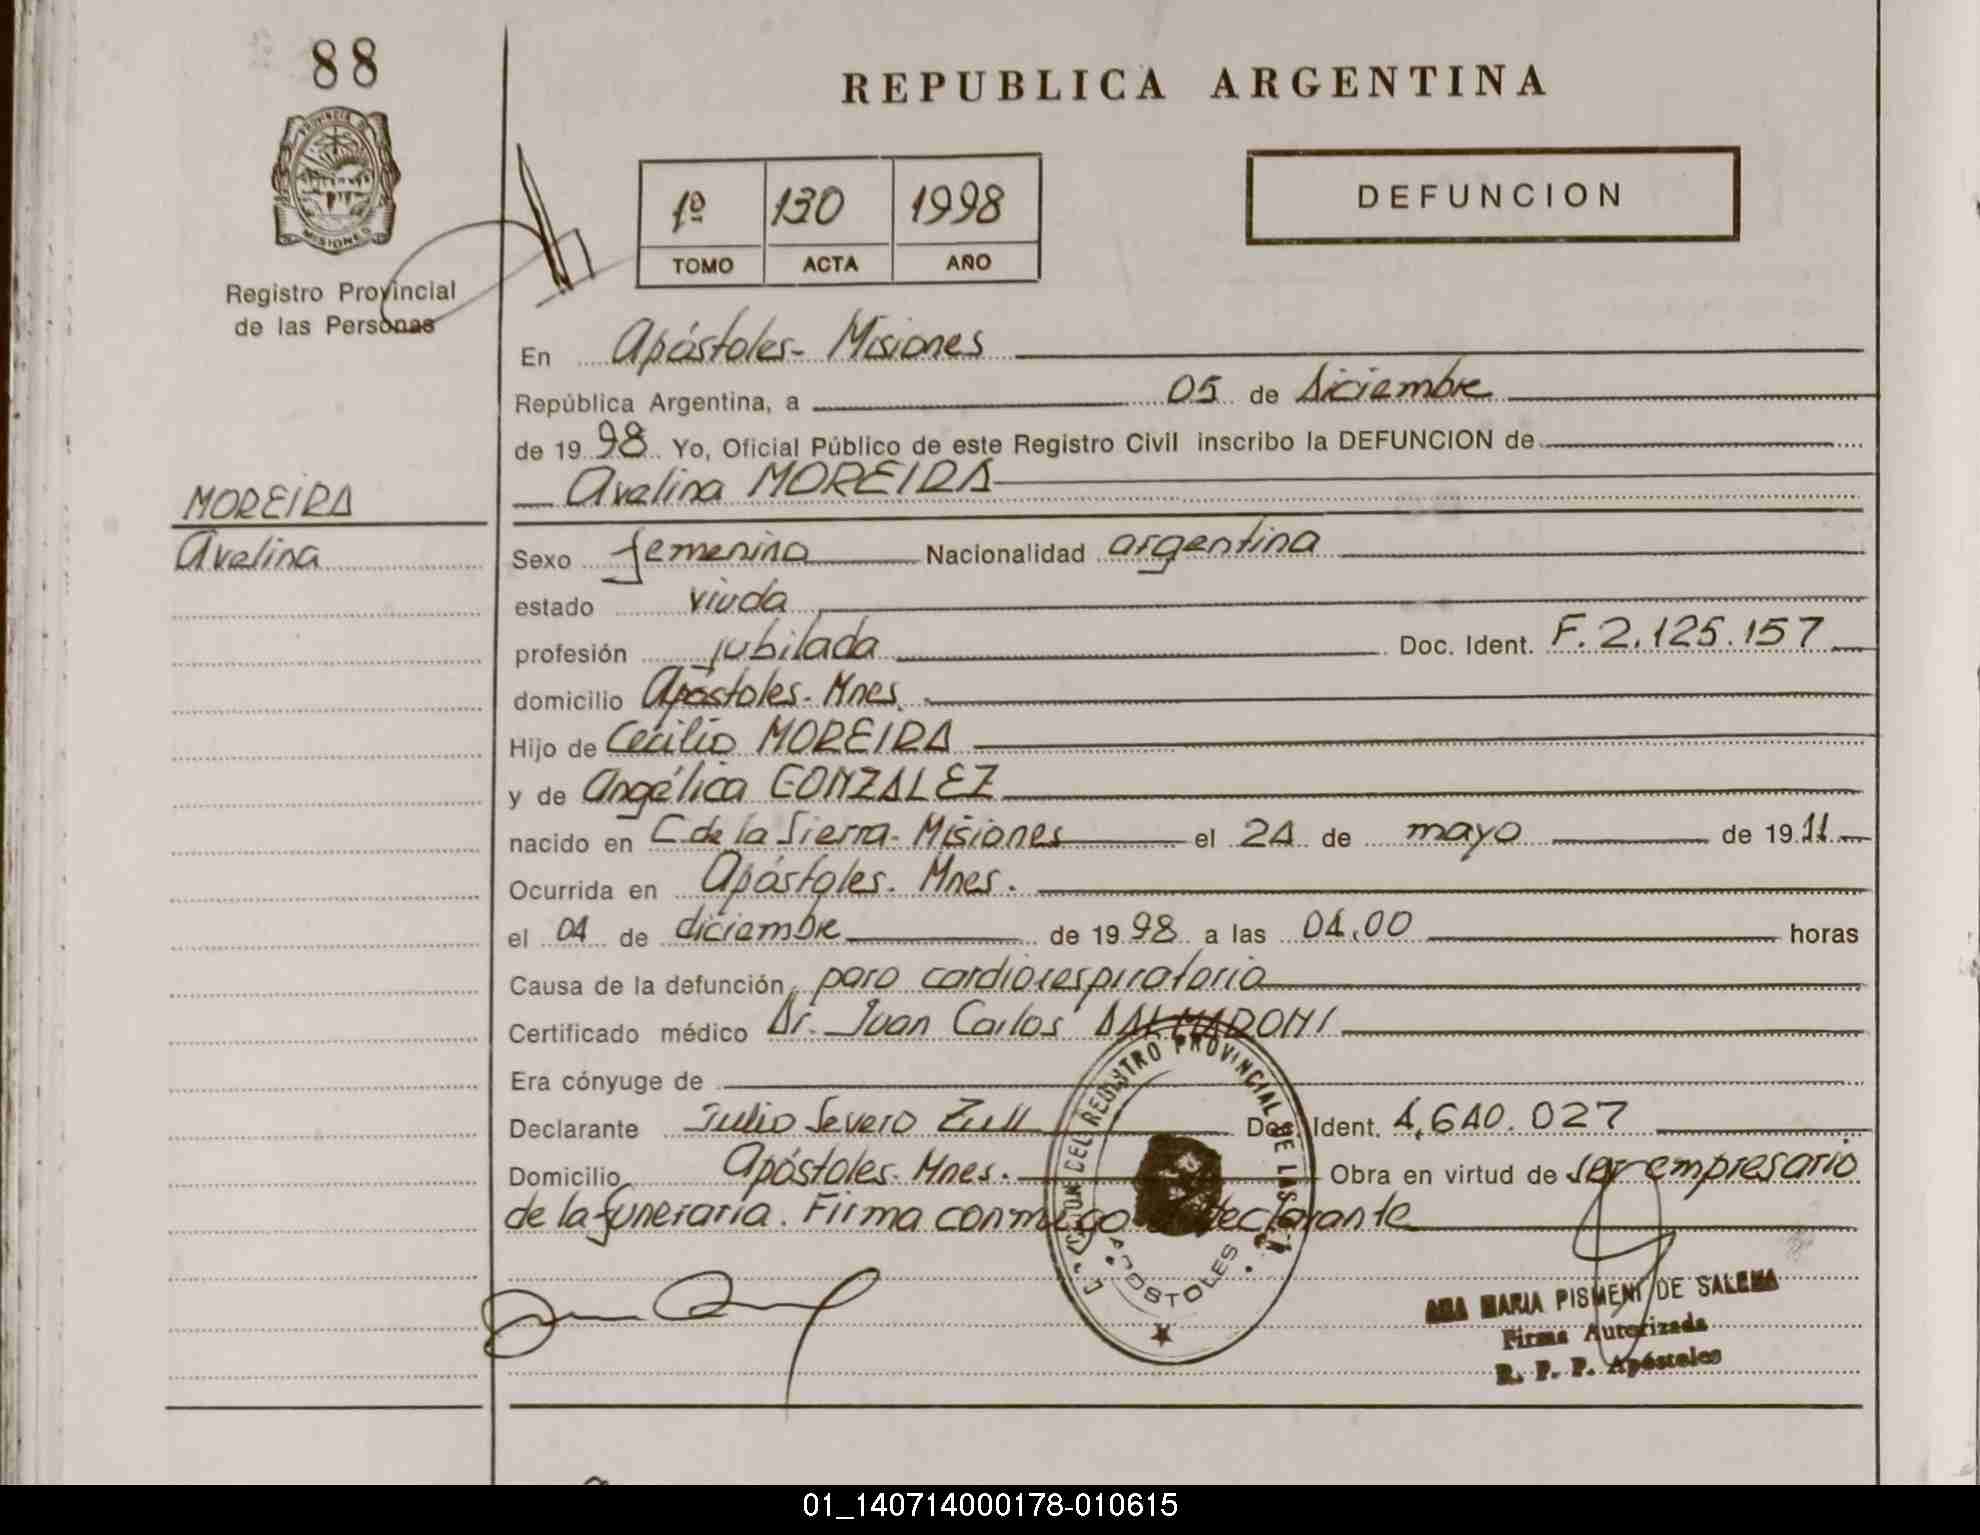 88
REPUBLICA ARGENTINA
PROVINCIA DE
MISIONES
Registro Provincial
de las Personas
1º 130 1998
TOMO ACTA AÑO
DEFUNCION
En Apóstoles - Misiones
República Argentina, a 05 de diciembre
de 19 98 Yo, Oficial Público de este Registro Civil inscribo la DEFUNCION de
Avelina MOREIRA
MOREIRA
Avelina
Sexo femenino Nacionalidad argentina
estado viuda
profesión jubilada Doc. Ident. F. 2.125.157
domicilio Apóstoles - Mnes.
Hijo de Cecilio MOREIRA
y de Angélica GONZALEZ
nacido en C. de la Sierra - Misiones el 24 de mayo de 19 11
Ocurrida en Apóstoles. Mnes.
el 04 de diciembre de 19 98 a las 04,00 horas
Causa de la defunción paro cardiorespiratorio
Certificado médico Dr. Juan Carlos DALMARONI
Era cónyuge de
Declarante Julio Severo Zull Doc. Ident. 4.640.027
Domicilio Apóstoles. Mnes. Obra en virtud de ser empresario
de la funeraria. Firma conmigo declarante
REGISTRO PROVINCIAL DE LAS
APOSTOLES
ANA MARIA PISMENI DE SALEMA
Firma Autorizada
R. P. P. Apóstoles
01_140714000178-010615